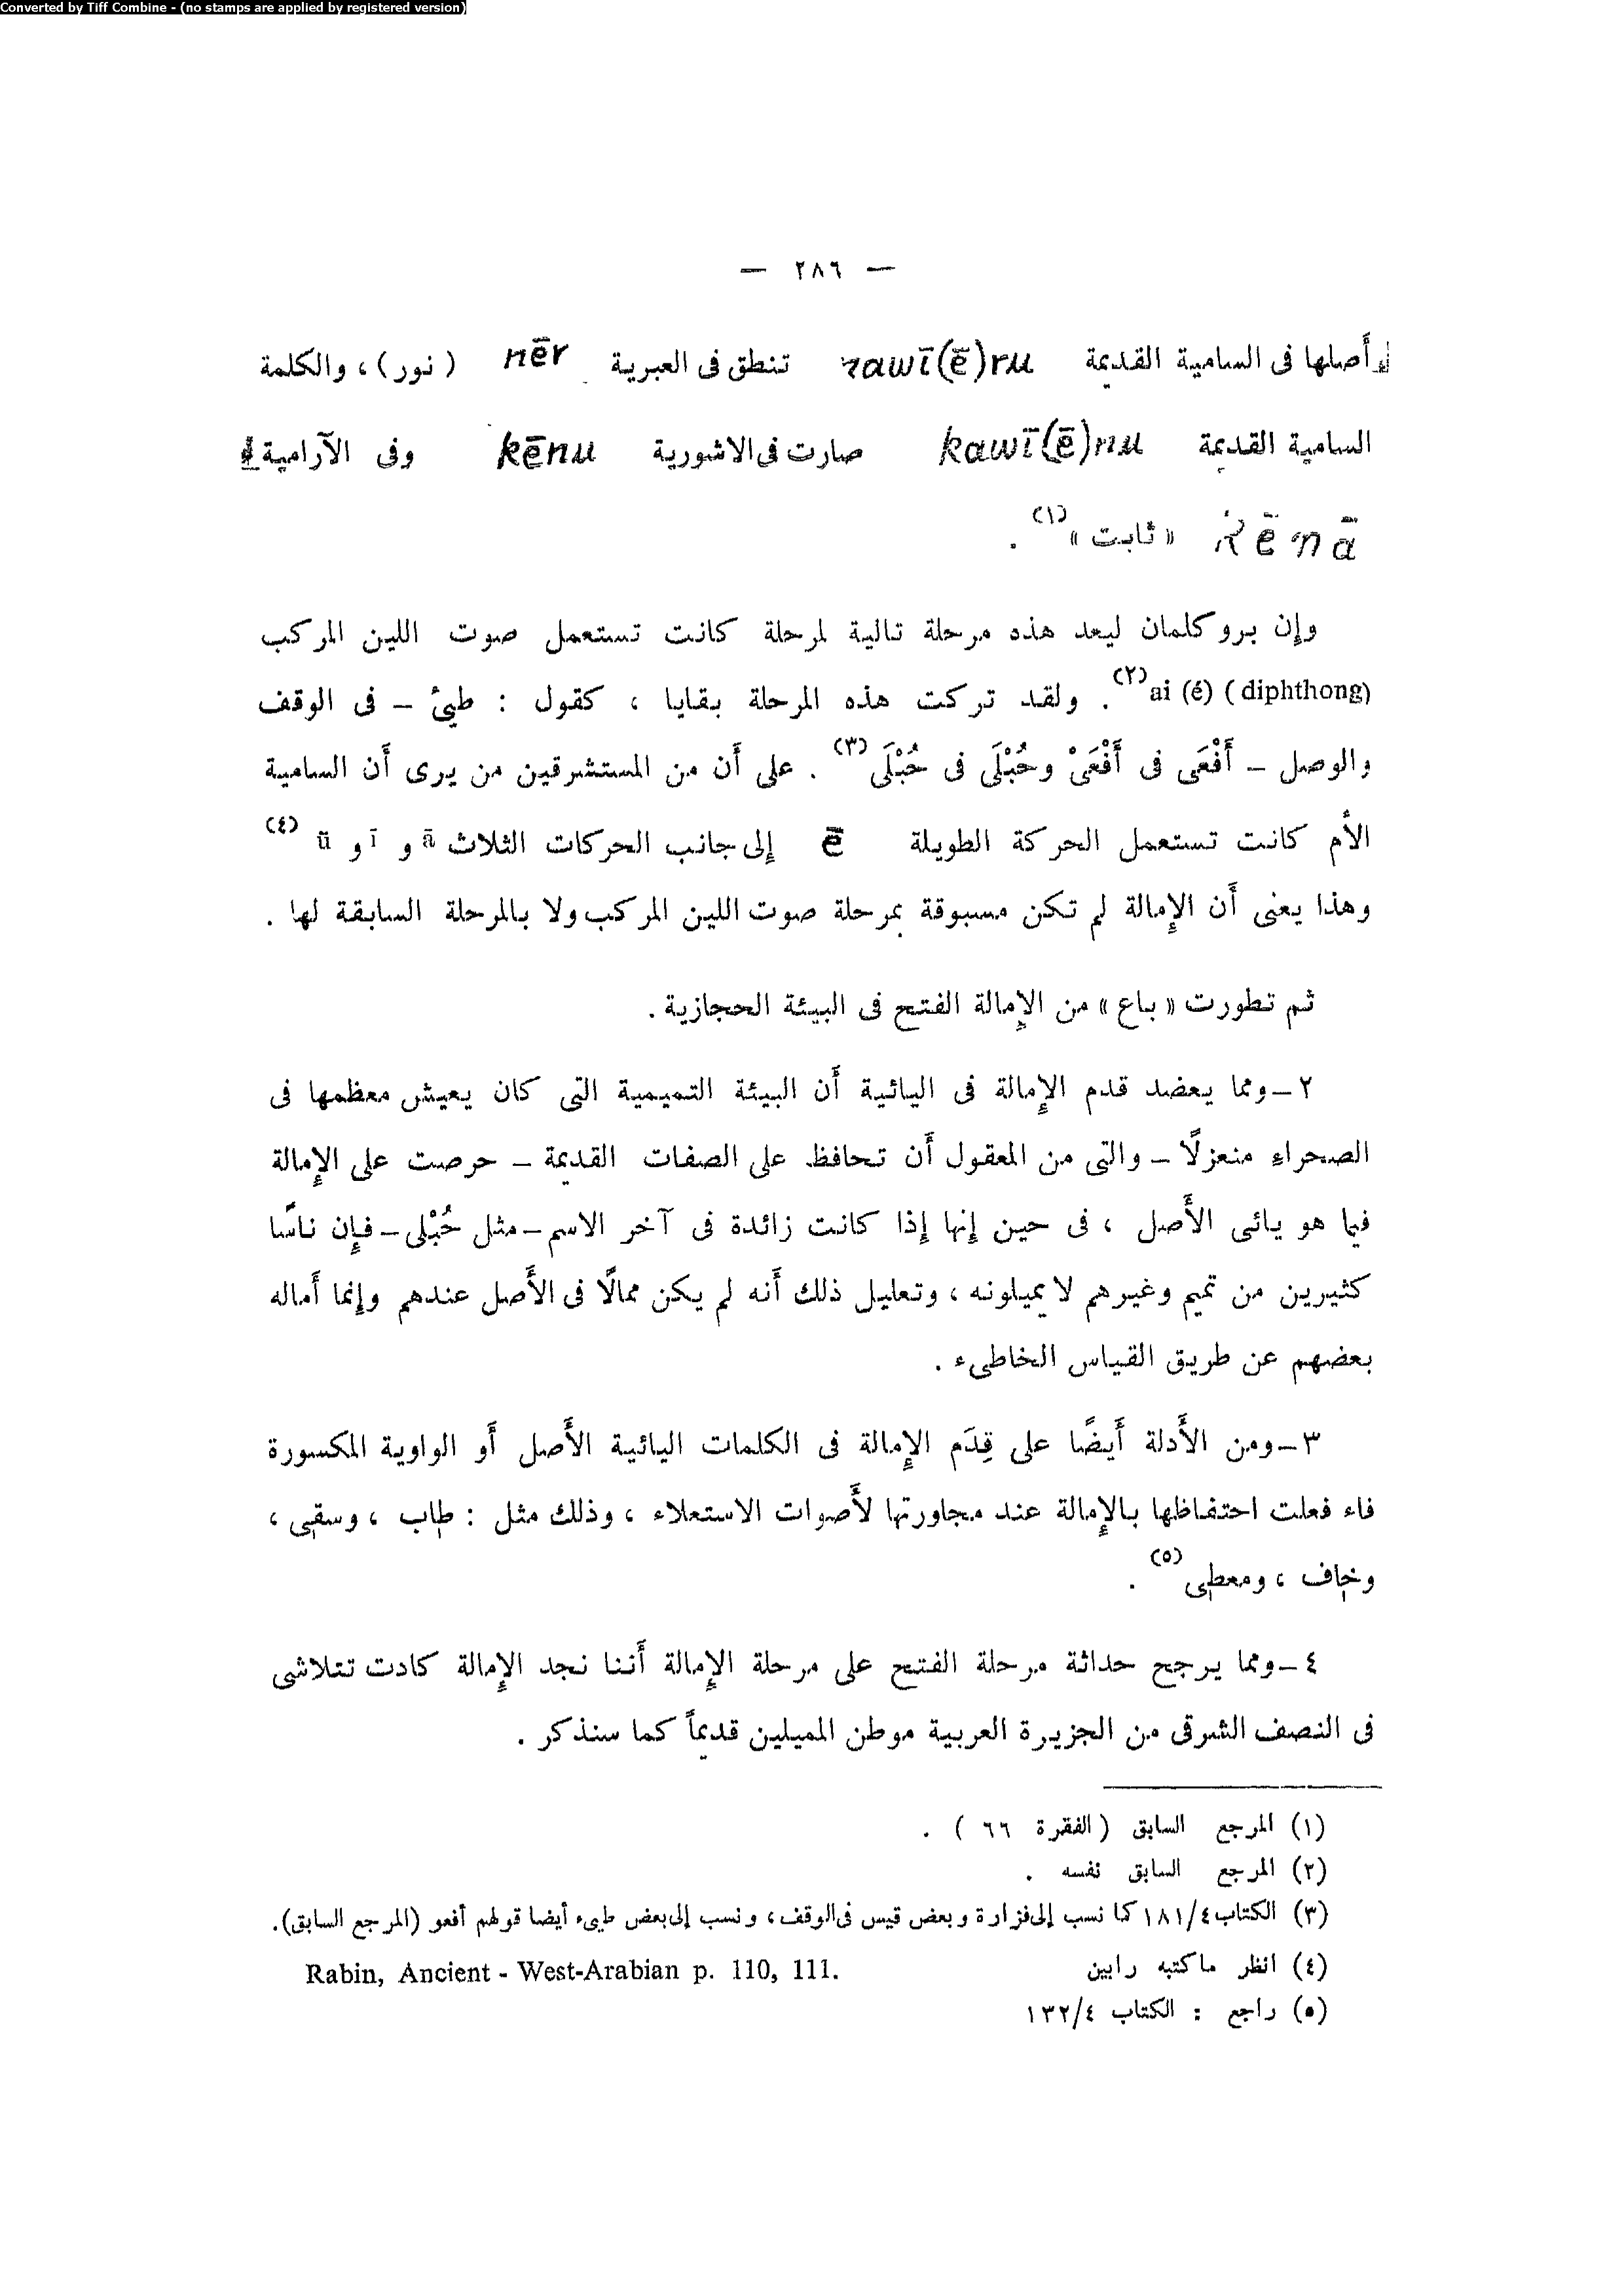 Converted by Tiff Combine - (no stamps are applied by registered version)
— ٢٨٦ —
أصلها فى السامية القديمة nawī(ē)ru تنطق فى العبرية nēr ( نور ) ، والكلمة
السامية القديمة kawī(ē)nu صارت فى الاشورية kēnu وفى الآرامية
kēnā « ثابت » (١) .
وإن بروكلمان ليعد هذه مرحلة تالية لمرحلة كانت تستعمل صوت اللين المركب
ai (é) ( diphthong) (٢) . ولقد تركت هذه المرحلة بقايا ، كقول : طيئ – فى الوقف
والوصل – أَفْعَى فى أَفْعَىْ وحُبْلَى فى حُبْلَى (٣) . على أَن من المستشرقين من يرى أَن السامية
الأم كانت تستعمل الحركة الطويلة ē إلى جانب الحركات الثلاث ā و ī و ū (٤)
وهذا يعنى أَن الإِمالة لم تكن مسبوقة بمرحلة صوت اللين المركب ولا بالمرحلة السابقة لها .
ثم تطورت « باع » من الإِمالة الفتح فى البيئة الحجازية .
٢ – ومما يعضد قدم الإِمالة فى اليائية أَن البيئة التميمية التى كان يعيش معظمها فى
الصحراءِ منعزلًا – والتى من المعقول أَن تحافظ على الصفات القديمة – حرصت على الإِمالة
فيما هو يائى الأَصل ، فى حين إِنها إِذا كانت زائدة فى آخر الاسم – مثل حُبْلى – فإِن ناسًا
كثيرين من تميم وغيرهم لا يميلونه ، وتعليل ذلك أَنه لم يكن ممالًا فى الأَصل عندهم وإِنما أَماله
بعضهم عن طريق القياس الخاطىء .
٣ – ومن الأَدلة أَيضًا على قِدَم الإِمالة فى الكلمات اليائية الأَصل أَو الواوية المكسورة
فاء فعلت احتفاظها بالإِمالة عند مجاورتها لأَصوات الاستعلاء ، وذلك مثل : طاب ، وسقى ،
وخاف ، ومعطى (٥) .
٤ – ومما يرجح حداثة مرحلة الفتح على مرحلة الإِمالة أَننا نجد الإِمالة كادت تتلاشى
فى النصف الشرقى من الجزيرة العربية موطن المميلين قديماً كما سنذكر .
(١) المرجع السابق ( الفقرة ٦٦ ) .
(٢) المرجع السابق نفسه .
(٣) الكتاب ١٨١/٤ كما نسب إلى فزارة وبعض قيس فى الوقف ، ونسب إلى بعض طيىء أيضا قولهم أفعو (المرجع السابق).
(٤) انظر ماكتبه رابين Rabin, Ancient - West-Arabian p. 110, 111.
(٥) راجع : الكتاب ١٣٢/٤